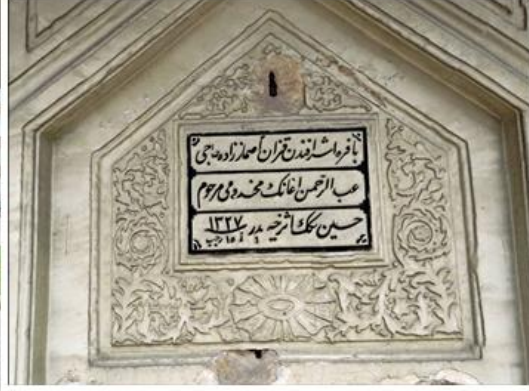 بافره اشرافندن قزان اصماز زاده حاجی
عبد الرحمن اغانك مخدومی مرحوم
حسین بك اثر خیریدر ١٣٢٧
١٥ رجب